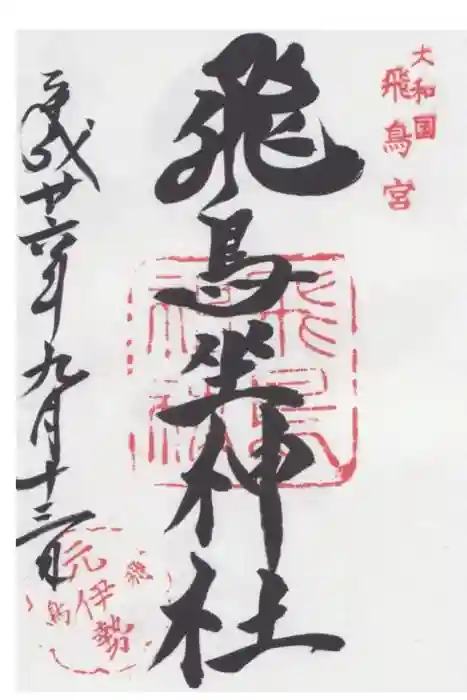 大和国
飛鳥宮
飛鳥坐神社
飛鳥神社
平成廿六年九月十三日
飛鳥
元伊勢